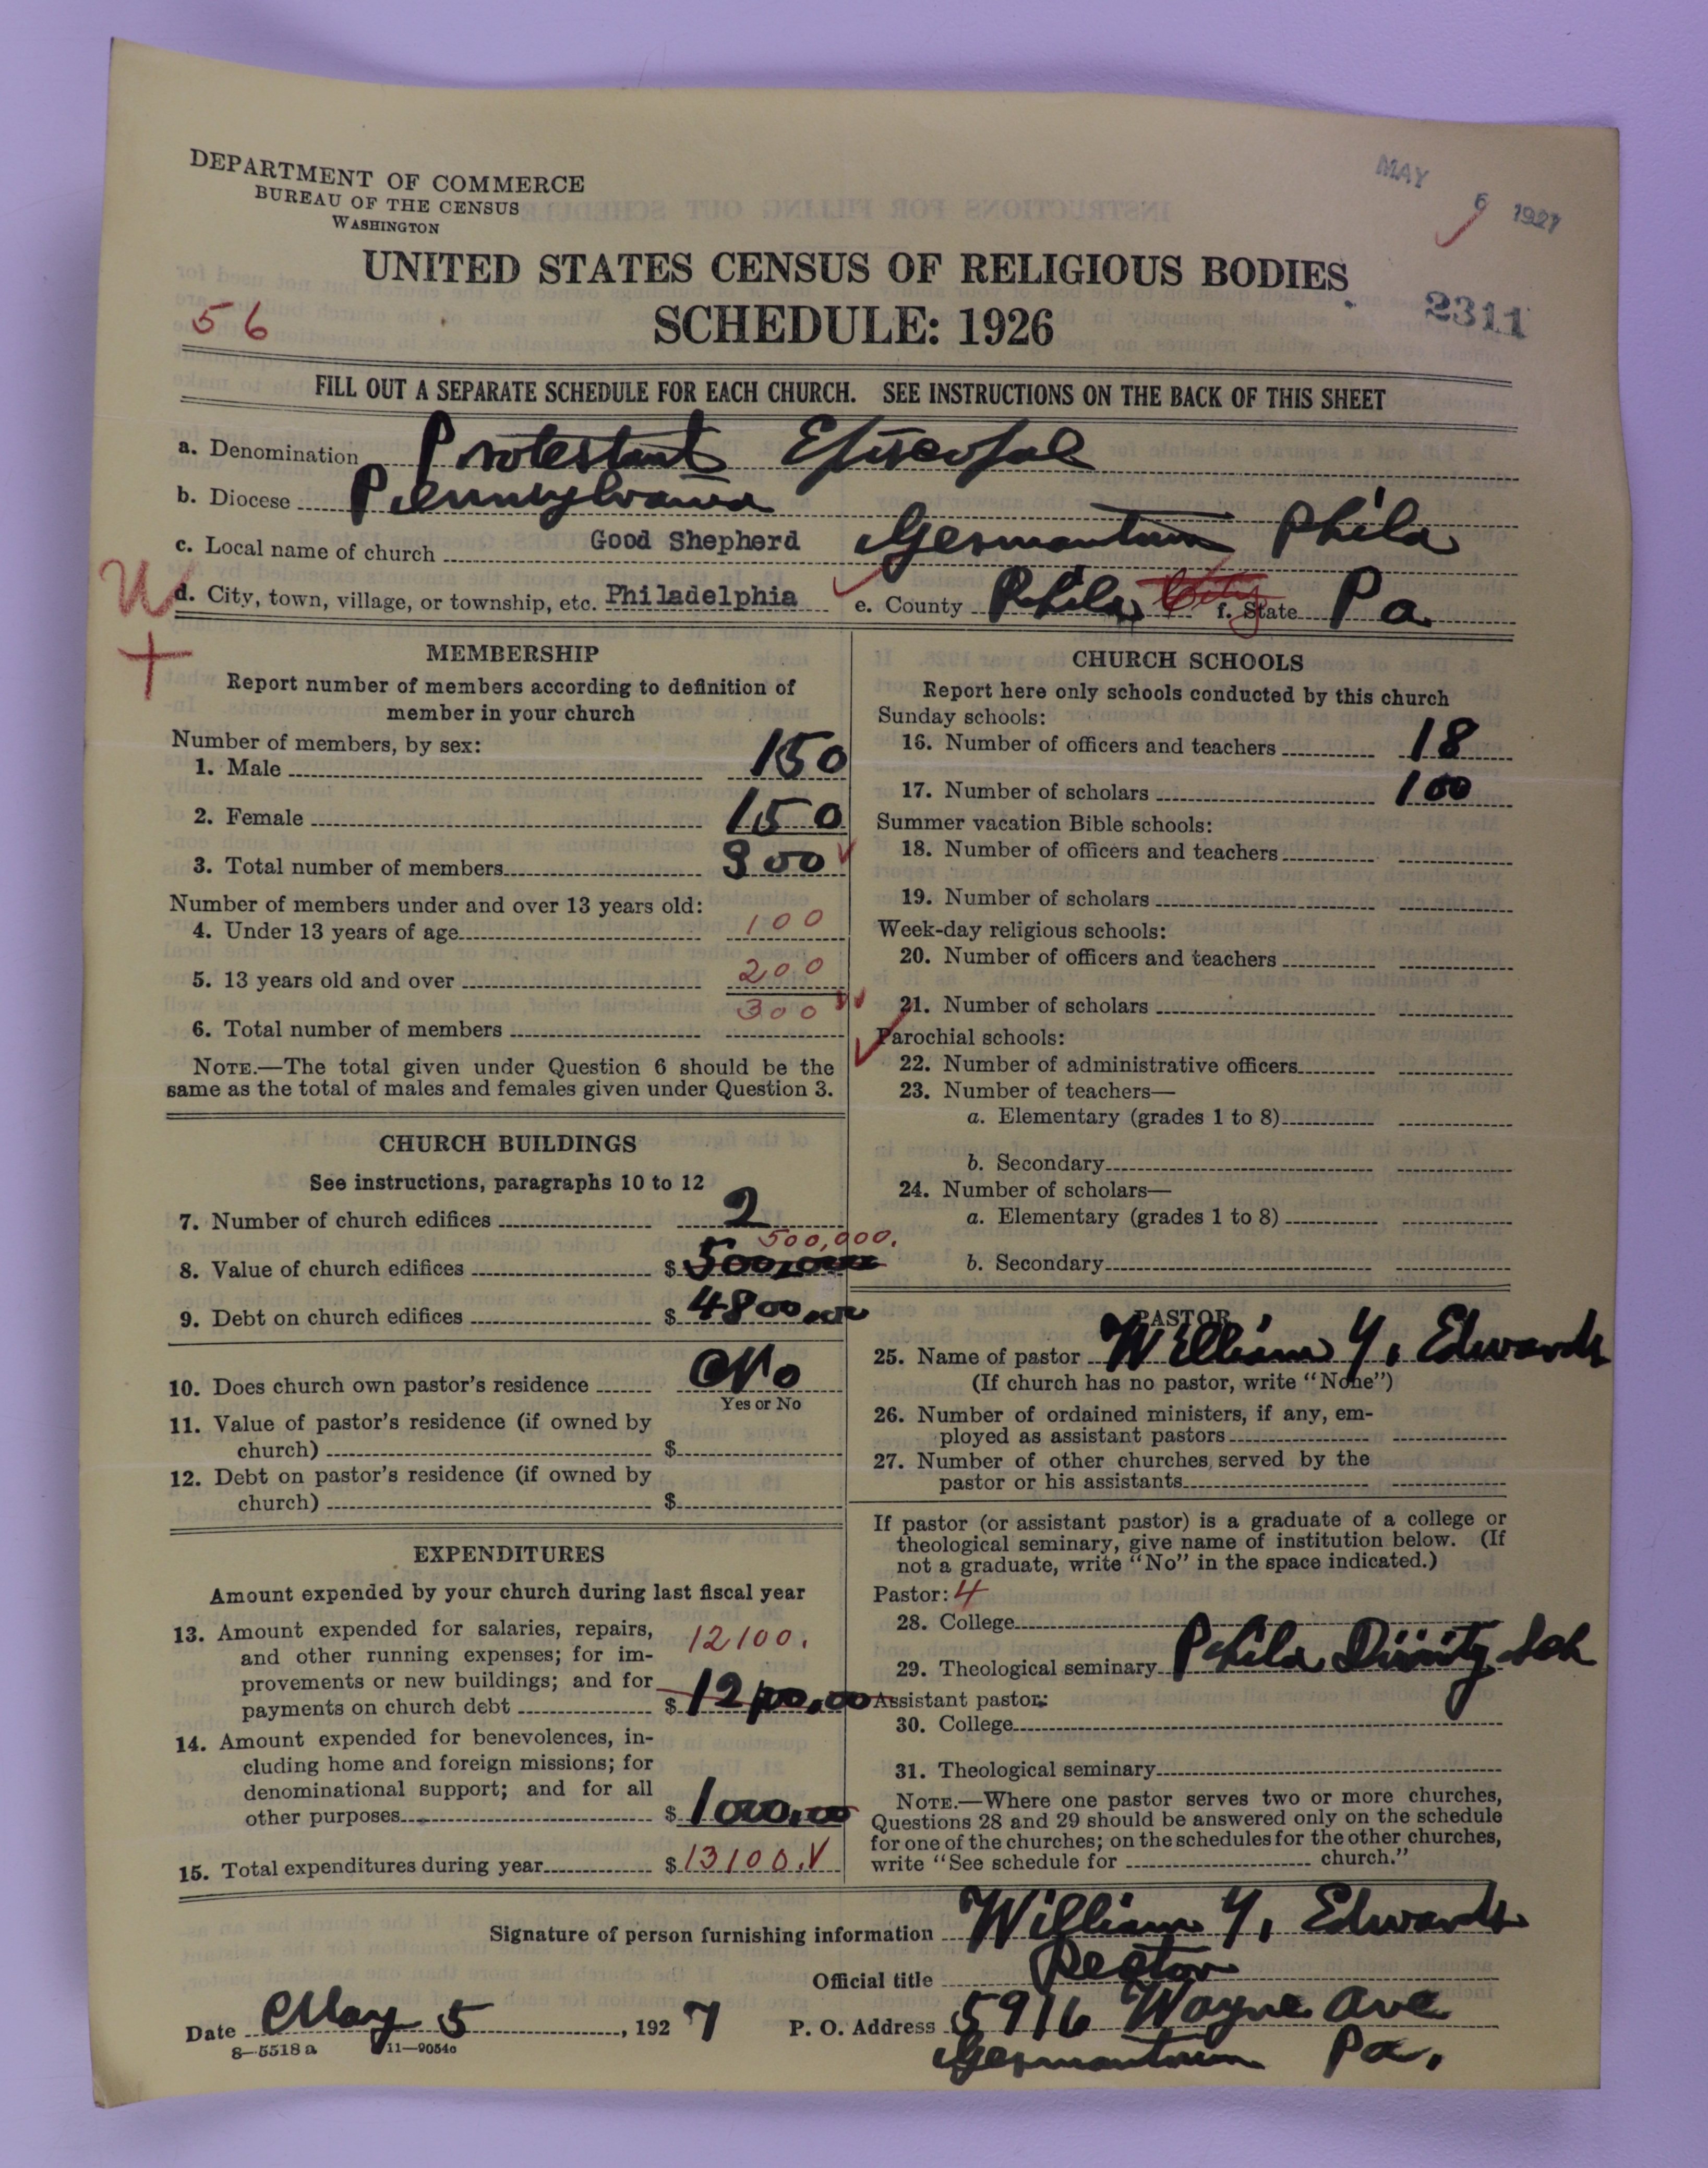 DEPARTMENT OF COMMERCE
BUREAU OF THE CENSUS
WASHINGTON
MAY 6 1927
UNITED STATES CENSUS OF RELIGIOUS BODIES
SCHEDULE: 1926
56
2311
FILL OUT A SEPARATE SCHEDULE FOR EACH CHURCH. SEE INSTRUCTIONS ON THE BACK OF THIS SHEET
a. Denomination Protestant Episcopal
b. Diocese Pennsylvania
c. Local name of church Good Shepherd Germantown Phila
U
d. City, town, village, or township, etc. Philadelphia e. County Phila City f. State Pa.
MEMBERSHIP
Report number of members according to definition of
member in your church
Number of members, by sex:
1. Male 150
2. Female 150
3. Total number of members 300
Number of members under and over 13 years old:
4. Under 13 years of age 100
5. 13 years old and over 200
6. Total number of members 300
NOTE.—The total given under Question 6 should be the
same as the total of males and females given under Question 3.
CHURCH BUILDINGS
See instructions, paragraphs 10 to 12
7. Number of church edifices 2
500,000.
8. Value of church edifices $
9. Debt on church edifices $ 4800.00
10. Does church own pastor's residence No
Yes or No
11. Value of pastor's residence (if owned by
church) $
12. Debt on pastor's residence (if owned by
church) $
EXPENDITURES
Amount expended by your church during last fiscal year
13. Amount expended for salaries, repairs,
and other running expenses; for im-
provements or new buildings; and for
payments on church debt $ 12100.
14. Amount expended for benevolences, in-
cluding home and foreign missions; for
denominational support; and for all
other purposes $ 1000.00
15. Total expenditures during year $ 13100.
CHURCH SCHOOLS
Report here only schools conducted by this church
Sunday schools:
16. Number of officers and teachers 18
17. Number of scholars 100
Summer vacation Bible schools:
18. Number of officers and teachers
19. Number of scholars
Week-day religious schools:
20. Number of officers and teachers
21. Number of scholars
Parochial schools:
22. Number of administrative officers
23. Number of teachers—
a. Elementary (grades 1 to 8)
b. Secondary
24. Number of scholars—
a. Elementary (grades 1 to 8)
b. Secondary
PASTOR
25. Name of pastor William Y. Edwards
(If church has no pastor, write "None")
26. Number of ordained ministers, if any, em-
ployed as assistant pastors
27. Number of other churches served by the
pastor or his assistants
If pastor (or assistant pastor) is a graduate of a college or
theological seminary, give name of institution below. (If
not a graduate, write "No" in the space indicated.)
Pastor: 4
28. College
29. Theological seminary Phila Divinity Sch
Assistant pastor:
30. College
31. Theological seminary
NOTE.—Where one pastor serves two or more churches,
Questions 28 and 29 should be answered only on the schedule
for one of the churches; on the schedules for the other churches,
write "See schedule for church."
Signature of person furnishing information William Y. Edwards
Official title Rector
Date May 5, 1927 P. O. Address 5916 Wayne Ave
Germantown Pa.
8—5518a 11—9054c